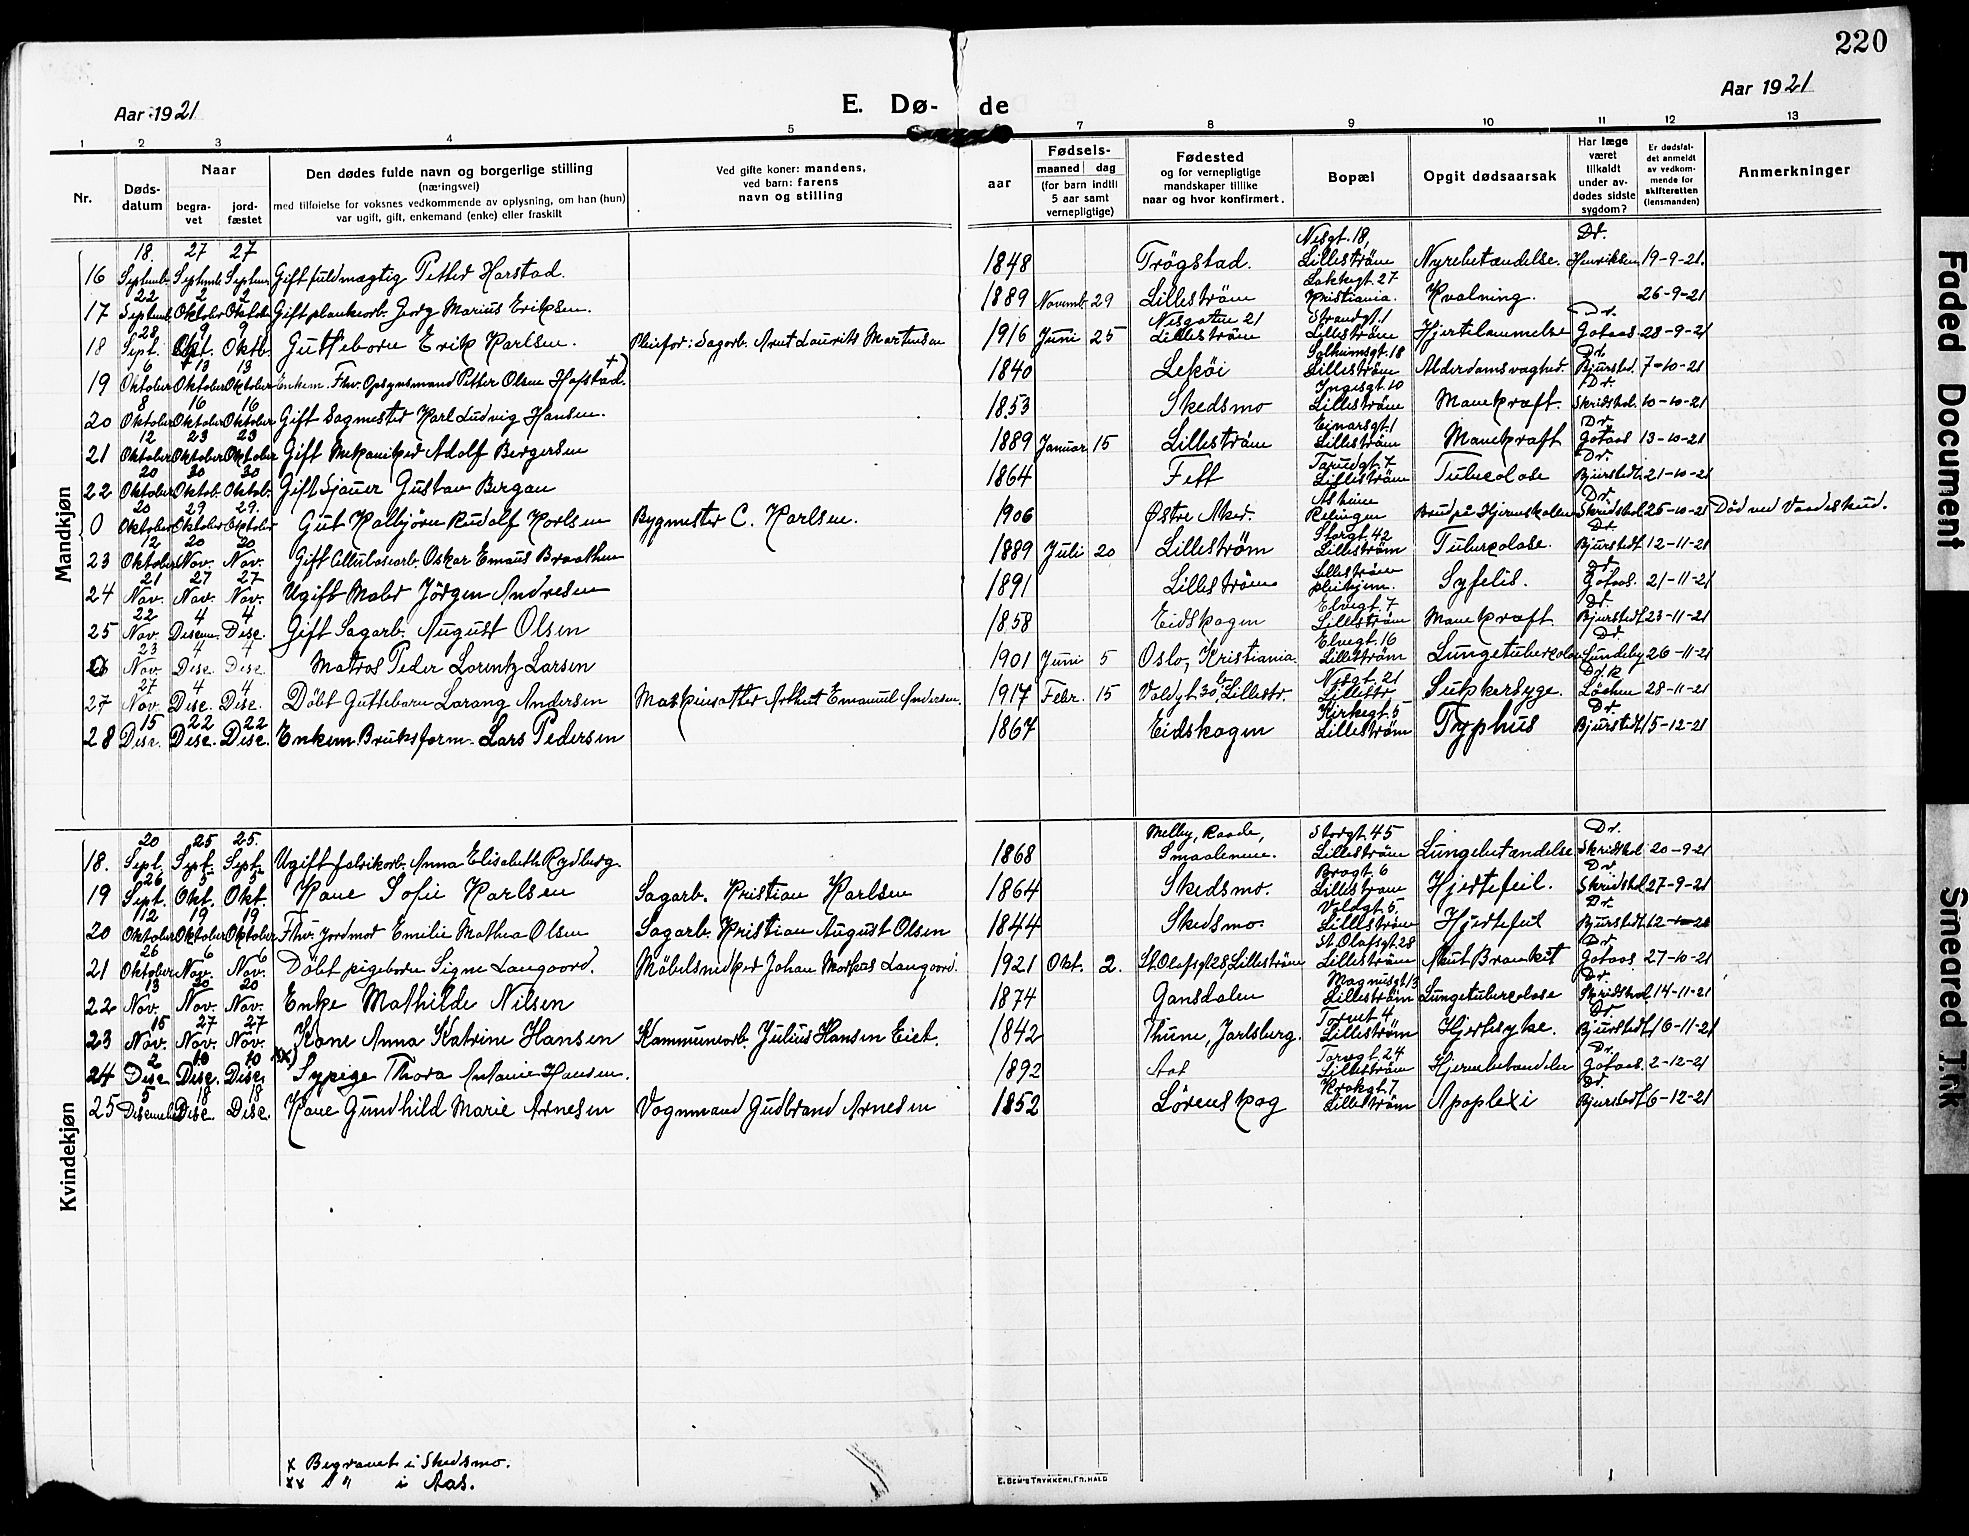 220
Aar 1921
E. Dø- de
Aar 1921
1 2 3 4 5 7 8 9 10 11 12 13
Nr.
Døds-
datum
Naar
begra-
vet
jord-
fæstet
Den dødes fulde navn og borgerlige stilling
(næringsvei)
med tilføielse for voksnes vedkommende av oplysning, om han (hun)
var ugift, gift, enkemand (enke) eller fraskilt
Ved gifte koner: mandens,
ved barn: farens
navn og stilling
aar
Fødsels-
maaned dag
(for barn indtil
5 aar samt
vernepligtige)
Fødested
og for vernepligtige
mandskaper tillike
naar og hvor konfirmert.
Bopæl
Opgit dødsaarsak
Har læge
været
tilkaldt
under av-
dødes sidste
sygdom?
Er dødsfal-
det anmeldt
av vedkom-
mende for
skifteretten
(lensmanden)
Anmerkninger
Mandkjøn
18. 27 27 Nesgt. 18, Dr.
16 Septemb. Septemb. Septemb. Gift fuldmægtig Petter Harstad. 1848 Trögstad. Lilleström Nyrebetændelse. Henriksen 19-9-21.
22 2 2 27
17 Septemb. Oktober Oktober Gift plankearb. Georg Marius Eriksen. 1889 Novemb. 29 Lilleström Kristiania. Kvælning. 26-9-21
28 9 9 Nesgaten 21 Strandgt. 1 Dr.
18 Sept. Okt. Oktb. Guttebarn Erik Karlsen. Pleiefor: Sagarb. Arnt Laurits Martinsen 1916 Juni 25 Lilleström Lilleström Hjertelammelse Götaas 28-9-21
6 13 13 +) Solheimsgt. 18 Dr.
19 Oktober Oktober Oktober Enkem. Fhv. Opsynsmand Petter Olsen Hofstad. 1840 Leköi Lilleström Alderdomsvaghed. Bjursted. 7-10-21
8 16 16 Ingesgt. 10 Dr.
20 Oktober Oktober Oktober Gift Sagmester Karl Ludvig Hansen. 1853 Skedsmo Lilleström Mavekræft. Skridshol. 10-10-21
12 23 23 Einarsgt. 1 Dr.
21 Oktober Oktober Oktober Gift Mekaniker Adolf Bergersen 1889 Januar 15 Lilleström Lilleström Mavekræft Götaas 13-10-21
20 30 30 7 Dr.
22 Oktober Oktob. Oktob. Gift Sjauer Gustav Bergan 1864 Fett Lilleström Tuberkolose Bjurstedt. 21-10-21
20 29 29. Dr.
0 Oktober Oktober Oktober Gut Kolbjörn Rudolf Karlsen Bygmester C. Karlsen. 1906 Østre Aker. Relingen Brud på Hjerneskalen Skridshol 25-10-21 Död ved Vaadeskud.
12 20 20 Storgt. 42 Dr.
23 Oktober Nov. Nov. Gift Cellulosearb. Oskar Emaus Braathen 1889 Juli 20 Lilleström Lilleström Tuberkolose. Bjurstedt 12-11-21
21 27 27 Lilleström Dr
24 Nov. Nov. Nov. Ugift Maler Jörgen Andresen 1891 Lilleström pleiehjem. Syfelis. Götaas. 21-11-21
22 4 4 Elvegt. 7 Dr.
25 Nov. Desem. Dese. Gift Sagarb. August Olsen 1858 Eidskogen Lilleström Mavekræft. Bjurstedt 23-11-21
23 4 4 Elvegt. 16 Dr.
Nov. Dese. Dese. Matros Peder Lorentz Larsen 1901 Juni 5 Oslo, Kristiania. Lilleström Lungetuberkolose Lundeby 26-11-21
27 4 4 Nesgt. 21
27 Nov. Dese. Dese. Döbt Guttebarn Larang Andersen Maskinsætter Arthur Emanuel Andersen. 1917 Febr. 15 Voldgt. 30 b, Lillestr. Lillestr. Sukkersyge. Löchen 28-11-21
15 22 22 Kirkegt. 5 Dr.
28 Dese. Dese. Dese. Enkem. Bruksform. Lars Pedersen 1867 Eidskogen Lilleström Typhus Bjurstedt 15-12-21
Kvindekjøn
20 25 25. Melby, Raade, Storgt. 45 Dr.
18. Sept. Sept. Sept. Ugift fabrikarb. Anna Elisabeth Rydberg. 1868 Smaalenene. Lilleström Lungebetændelse Skridshol 20-9-21
26 5 5 Brogt. 6 Dr.
19 Sept. Okt. Okt. Kone Sofie Karlsen Sagarb. Kristian Karlsen 1864 Skedsmo. Lilleström Hjertefeil. Skridshol 27-9-21
12 19 19 Voldgt. 5, Dr.
20 Oktober Oktober Oktober Fhv. jordmor Emilie Mathea Olsen Sagarb. Kristian August Olsen 1844 Skedsmo. Lilleström Hjertefeil Bjurstedt.
26 6 6 St. Olafsgt. 28 Dr
21 Oktober Nov. Nov. Döbt pigebarn Signe Langaard. Möbelsnedker Johan Markus Langaard. 1921 Okt. 2. St. Olafsgt 28, Lilleström Lilleström Akut Bronkit Götaas. 27-10-21
13 20 20 Magnusgt 13 Dr.
22 Nov. Nov. Nov. Enke Mathilde Nilsen 1874 Gansdalen Lilleström Lungetuberkolose Skridshol 14-11-21
15 27 27 Torvet 4 Dr.
23 Nov. Nov. Nov. Kone Anna Katrine Hansen Kommunearb. Julius Hansen Eiet. 1842 Thune, Jarlsberg. Lilleström Hjertesyke. Bjurstedt 16-11-21
2 10 10 xx) Torvgt. 24 Dr.
24 Dese Dese. Dese. Sypige Thora Antonie Hansen. 1892 Aas Lilleström Götaas. 2-12-21
5 18 18 Krokgt. 7 Dr.
25 Desember Dese. Dese. Kone Gundhild Marie Arnesen Vognmand Gudbrand Arnesen 1852 Lörenskog Lilleström Apoplexi Bjurstedt 6-12-21
x Begravet i Skedsmo.
xx " " i Aas.
E. SEM'S TRYKKERI, FR.HALD
Faded Document
Smeared Ink